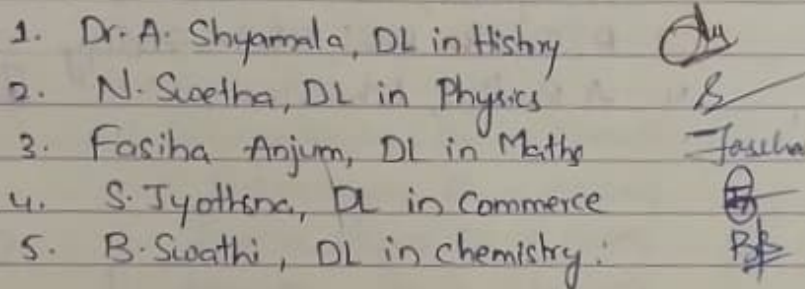 1. Dr. A. Shyamala, DL in History
2. N. Swetha, DL in Physics
3. Fasiha Anjum, DL in Maths
4. S. Jyothsna, DL in Commerce
5. B. Swathi, DL in chemistry.